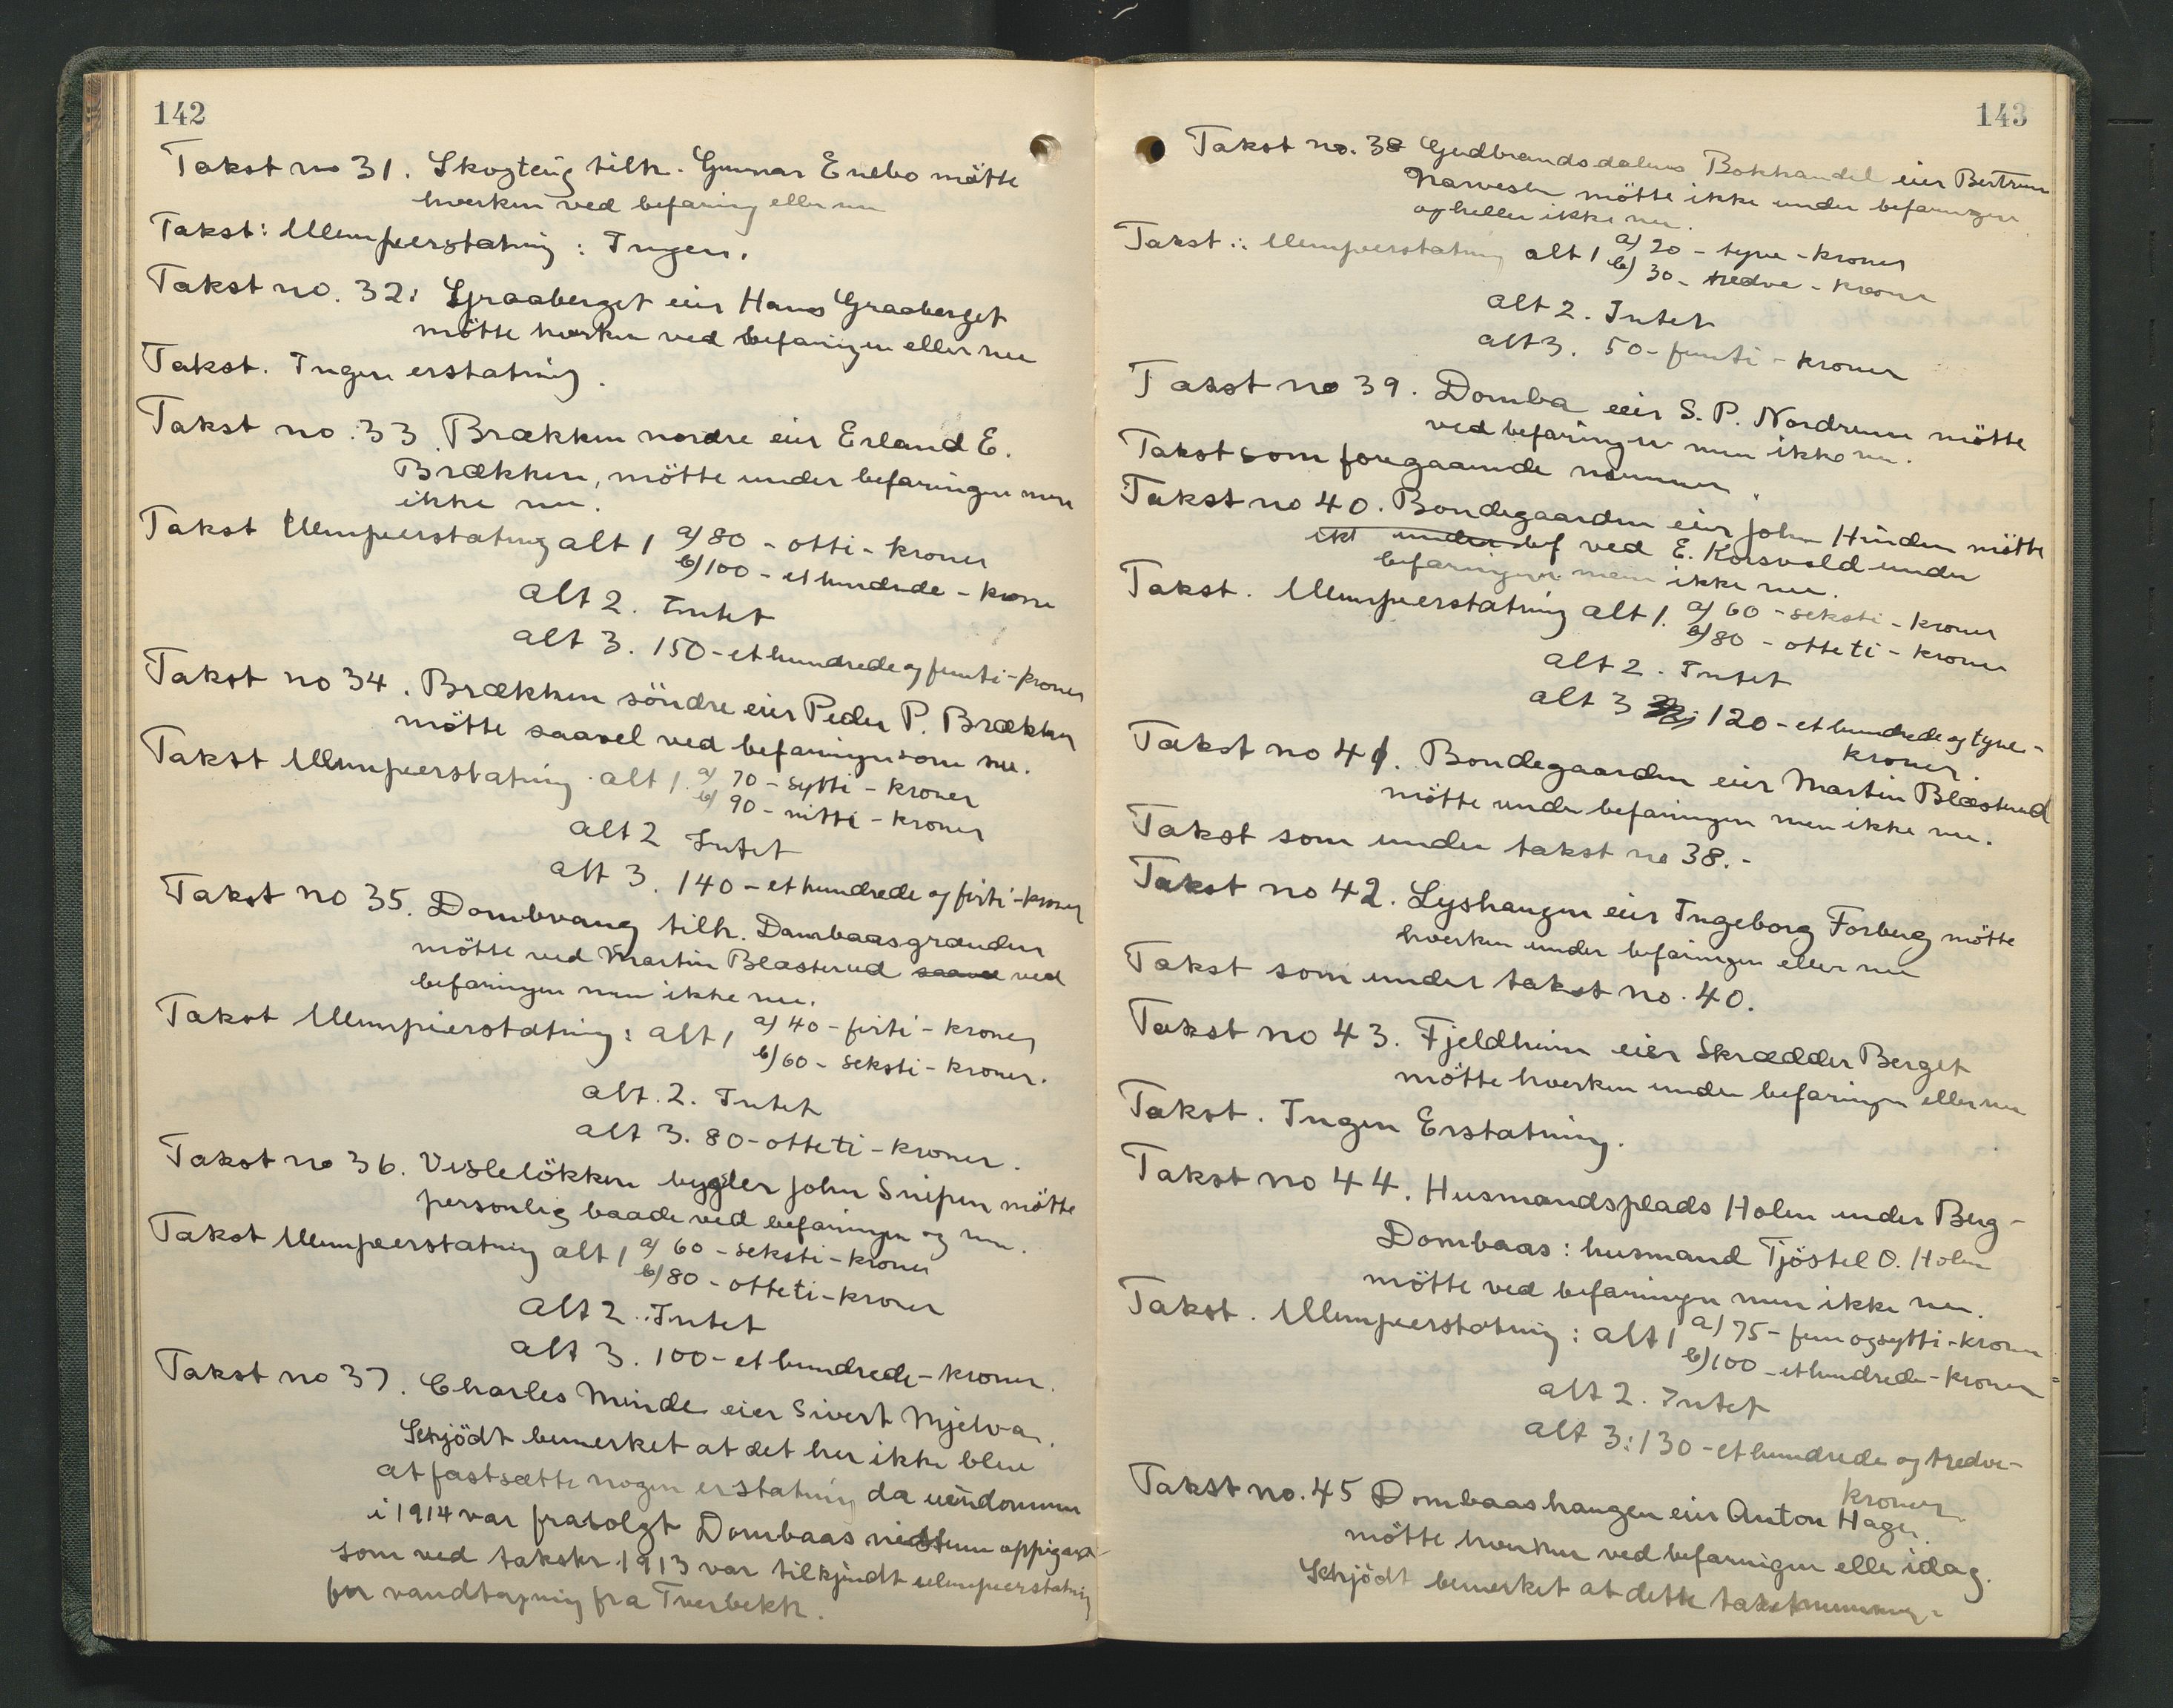 142
Takst no 31. Skogteig tilh. Gunnar Enebo mötte
hverken ved befaring eller nu
Takst: Ulempeerstatning: Ingen.
Takst no. 32: Graaberget eier Hans Graaberget
mötte hverken ved befaringen eller nu
Takst. Ingen erstatning.
Takst no. 33. Brækken nordre eier Erland E.
Brækken, mötte under befaringen men
ikke nu.
Takst Ulempeerstatning alt 1 a) 80 - otti - kroner
b) 100 - et hundrede - krone
alt 2. Intet
alt 3. 150 - et hundrede og femti - kroner
Takst no 34. Brækken söndre eier Peder P. Brækken
mötte saavel ved befaringen som nu.
Takst Ulempeerstatning. alt 1. a) 70 - sytti - kroner
b) 90 - nitti - kroner
alt 2 Intet
alt 3. 140 - et hundrede og firti - kroner
Takst no 35. Dombvang tilh. Dombaasgrænden
mötte ved Martin Blæsterud saavel ved
befaringen men ikke nu.
Takst Ulempeerstatning: alt 1 a) 40 - firti - kroner
b) 60 - seksti - kroner.
alt. 2. Intet
alt 3. 80 - otteti - kroner.
Takst no 36. Vislelökken bygsler John Snipen mötte
personlig baade ved befaringen og nu.
Takst Ulempeerstatning alt 1 a) 60 - seksti - kroner
b) 80 - otteti - kroner
alt 2. Intet
alt 3. 100 - et hundrede - kroner.
Takst no 37. Charles Minde eier Sivert Mjelva.
Schjödt bemerket at det her ikke blev
at fastsætte nogen erstatning da eiendommen
i 1914 var frasolgt Dombaas nistuen oppigard
som ved takster 1913 var tilkjendt ulempeerstatning
for vandtapning fra Tverbekk.
143
Takst no. 38 Gudbrandsdalens Bokhandel eier Bertrum
Narvesen mötte ikke under befaringen
og heller ikke nu.
Takst: Ulempeerstatning alt 1 a) 20 - tyve - kroner
b) 30 - tredve - kroner
alt 2. Intet
alt 3. 50 - femti - kroner
Takst no 39. Domba eier S. P. Nordrum mötte
ved befaringen men ikke nu.
Takst som foregaaende nummer.
Takst no 40. Bondegaarden eier John Hinden mötte
ikt under bef ved E. Korsvold under
befaringen men ikke nu.
Takst. Ulempeerstatning alt 1. a) 60 - seksti - kroner
b) 80 - otteti - kroner
alt 2. Intet
alt 3 120 - et hundrede og tyve -
kroner.
Takst no 41. Bondegaarden eier Martin Blæsterud
mötte under befaringen men ikke nu.
Takst som under takst no 38. -
Takst no 42. Lyshaugen eier Ingeborg Forberg mötte
hverken under befaringen eller nu
Takst som under takst no. 40.
Takst no 43. Fjeldheim eier Skrædder Berget
mötte hverken under befaringen eller nu
Takst. Ingen Erstatning.
Takst no 44. Husmandsplads Holen under Berg -
Dombaas: husmand Tjöstel O. Holen
mötte ved befaringen men ikke nu.
Takst. Ulempeerstatning: alt 1 a) 75 - fem og sytti - kroner
b) 100 - et hundrede - kroner
alt 2. Intet
alt 3: 130 - et hundrede og tredve -
kroner
Takst no. 45 Dombaashaugen eier Anton Hagen
mötte hverken ved befaringen eller idag.
Schjödt bemerket at dette takstnummer